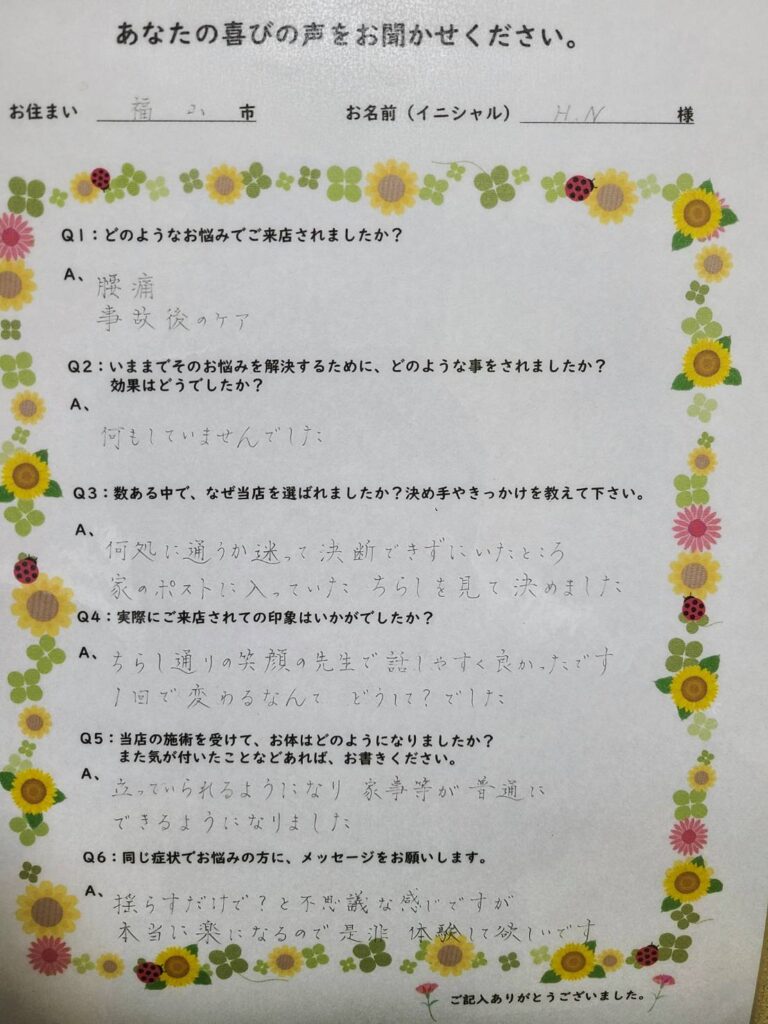 あなたの喜びの声をお聞かせください。
お住まい 福山 市 お名前（イニシャル） H.N 様
Q1：どのようなお悩みでご来店されましたか？
A、
腰痛
事故後のケア
Q2：いままでそのお悩みを解決するために、どのような事をされましたか？
効果はどうでしたか？
A、
何もしていませんでした
Q3：数ある中で、なぜ当店を選ばれましたか？決め手やきっかけを教えて下さい。
A、
何処に通うか迷って決断できずにいたところ
家のポストに入っていた ちらしを見て決めました
Q4：実際にご来店されての印象はいかがでしたか？
A、
ちらし通りの笑顔の先生で話しやすく良かったです
1回で変わるなんて どうして？でした
Q5：当店の施術を受けて、お体はどのようになりましたか？
また気が付いたことなどあれば、お書きください。
A、
立っていられるようになり 家事等が普通に
できるようになりました
Q6：同じ症状でお悩みの方に、メッセージをお願いします。
A、
揺らすだけで？と不思議な感じですが
本当に楽になるので是非 体験して欲しいです
ご記入ありがとうございました。